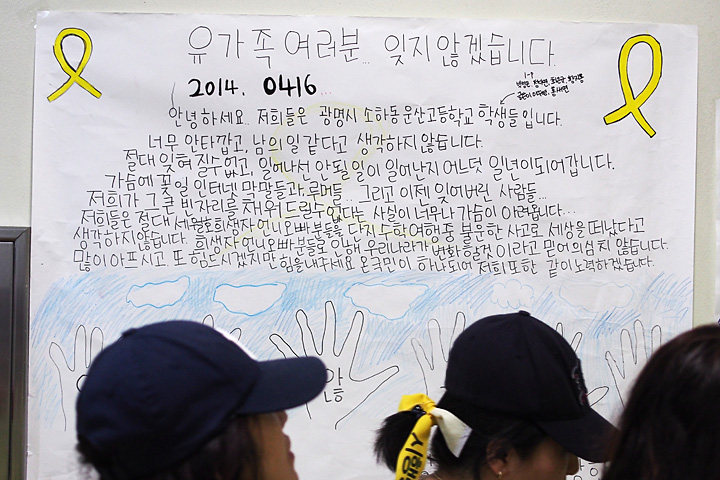 유가족 여러분... 잊지 않겠습니다.
2014. 0416...
1-9
안녕하세요.. 저희들은 광명시 소하동 운산고등학교 학생들입니다.
너무 안타깝고, 남의 일 같다고 생각하지 않습니다.
절대 잊혀질수 없고, 일어나선 안 될 일이 일어난지 어느덧 일년이 되어갑니다.
가슴에 꽂힐 인터넷 막말들과, 루머들... 그리고 이젠 잊어버린 사람들...
저희가 그 큰 빈자리를 채워드릴수 없다는 사실이 너무나 가슴이 아려옵니다...
저희들은 절대 세월호 희생자 언니오빠분들을 단지 수학여행중 불운한 사고로 세상을 떠났다고
생각하지 않습니다. 희생자 언니오빠분들로 인해 우리나라가 변화할것이라고 믿어 의심치 않습니다.
많이 아프시고 또 힘드시겠지만 힘을 내주세요 온국민이 하나되어 저희 또한 같이 노력하겠습니다.
않